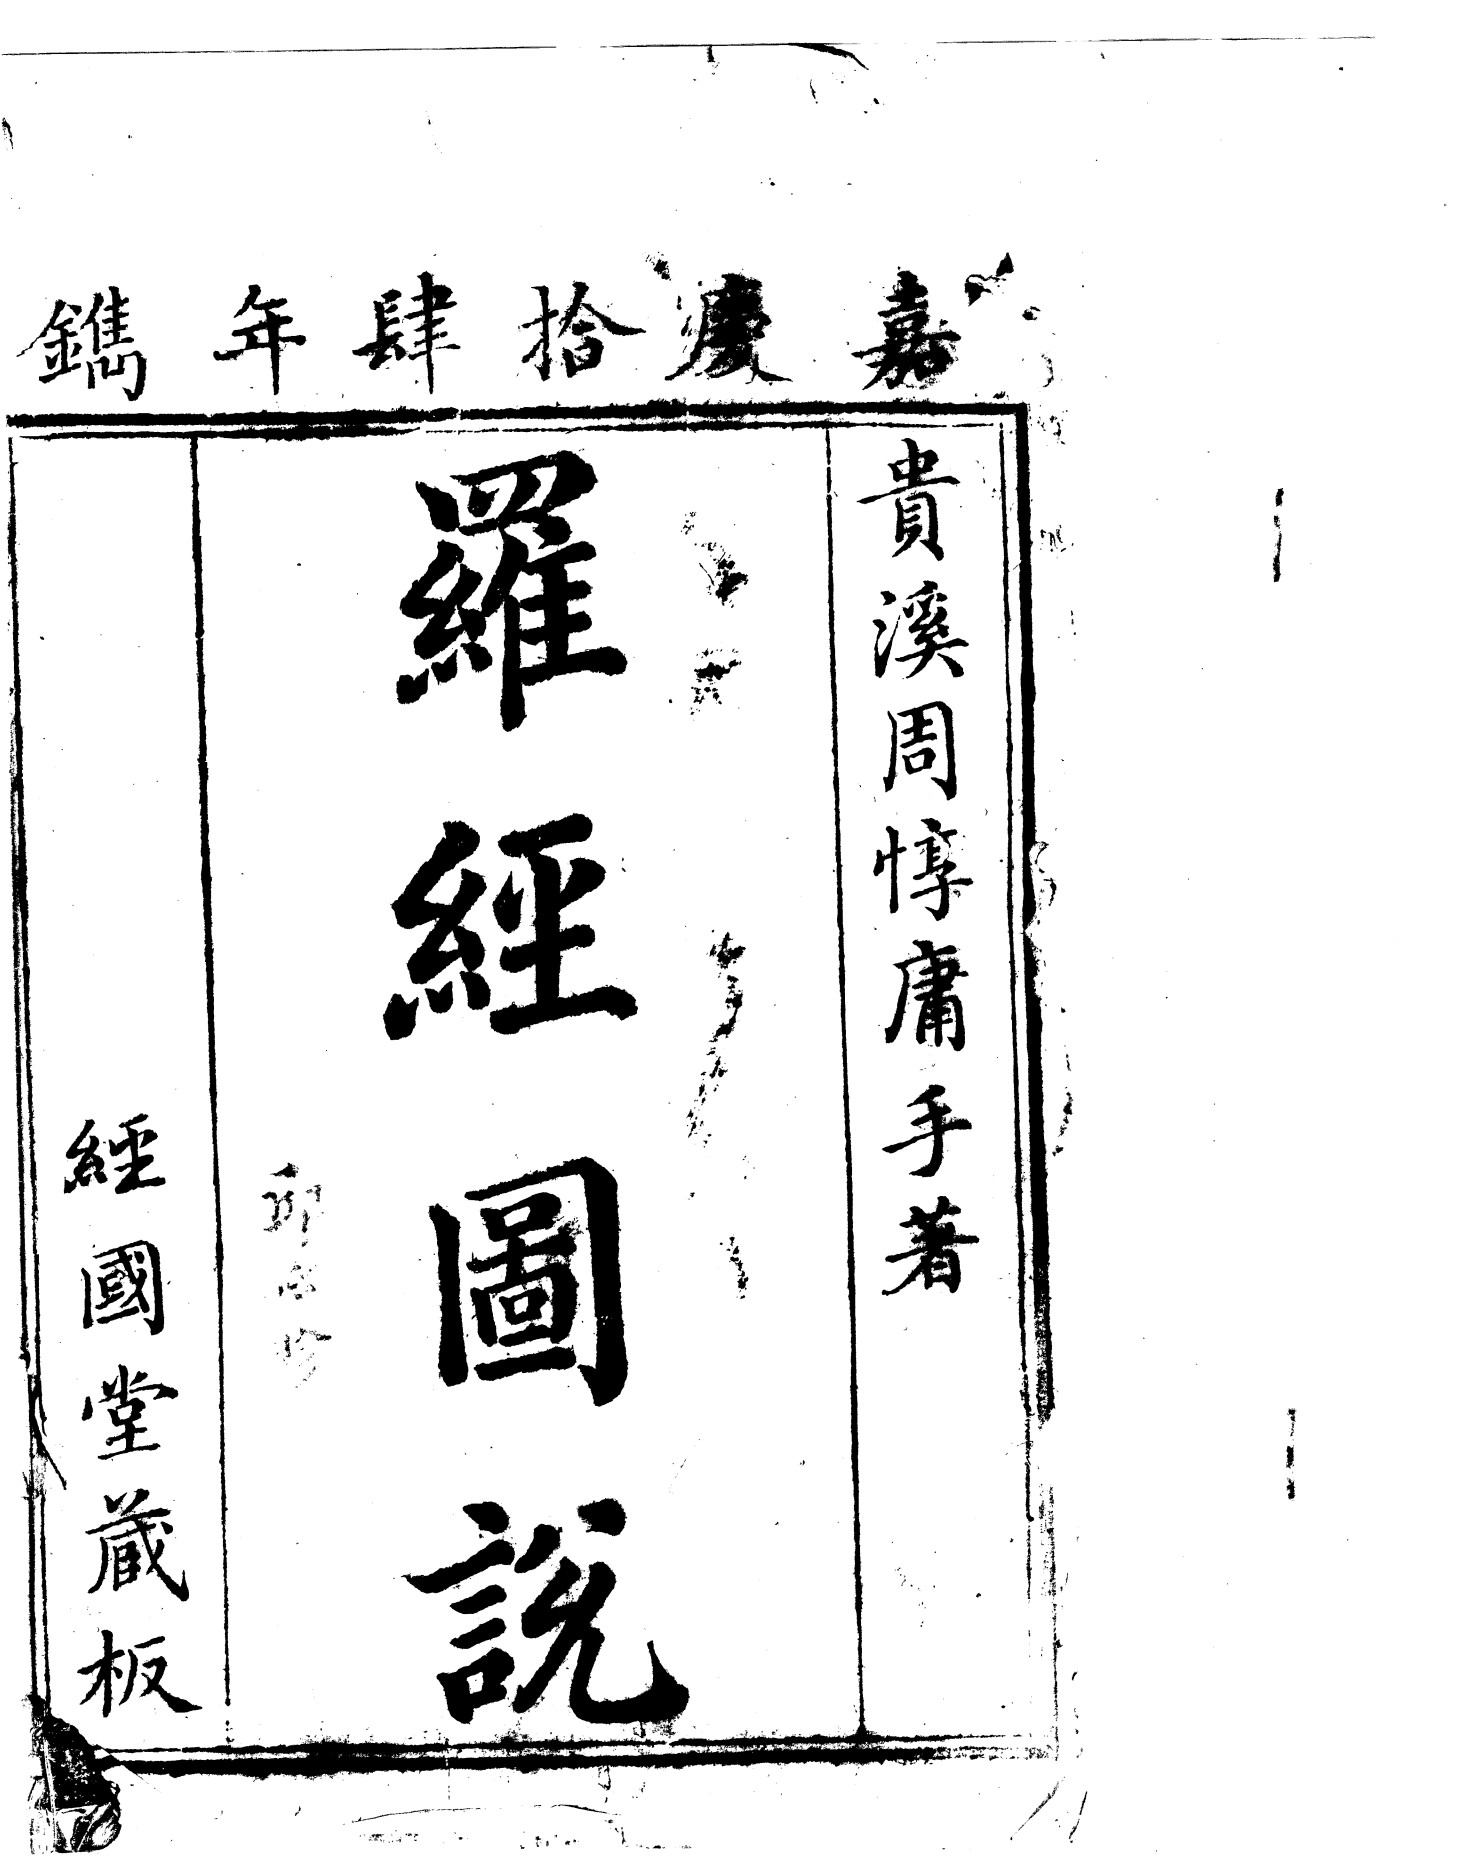 嘉慶拾肆年鐫
貴溪周惇庸手著
羅經圖說
經國堂蔵板